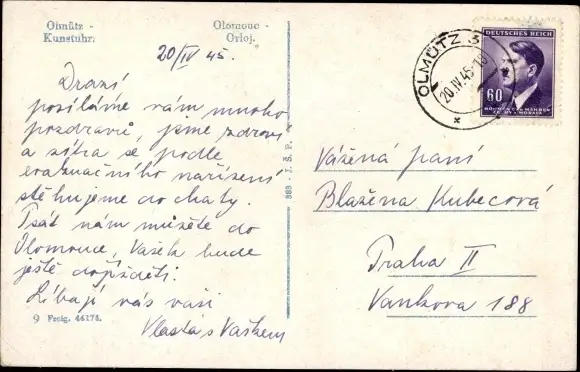 Olmütz -
Kunstuhr.
Olomouc -
Orloj.
20/IV 45.
Drazí
posíláme vám mnoho
pozdravů, jsme zdrávi
a zítra se podle
evakuačního nařízení
stěhujeme do chaty.
Psát nám můžete do
Olomouce, Vašek bude
ještě dojížděti.
Líbají vás vaši
Vlasta s Vaškem
9 Freig. 46174.
383 - J. Š. P.
OLMÜTZ 3
20.IV.45-18
DEUTSCHES REICH
60
BÖHMEN UND MÄHREN
ČECHY A MORAVA
Vážená paní
Blažena Kubecová
Praha II
Vankova 188